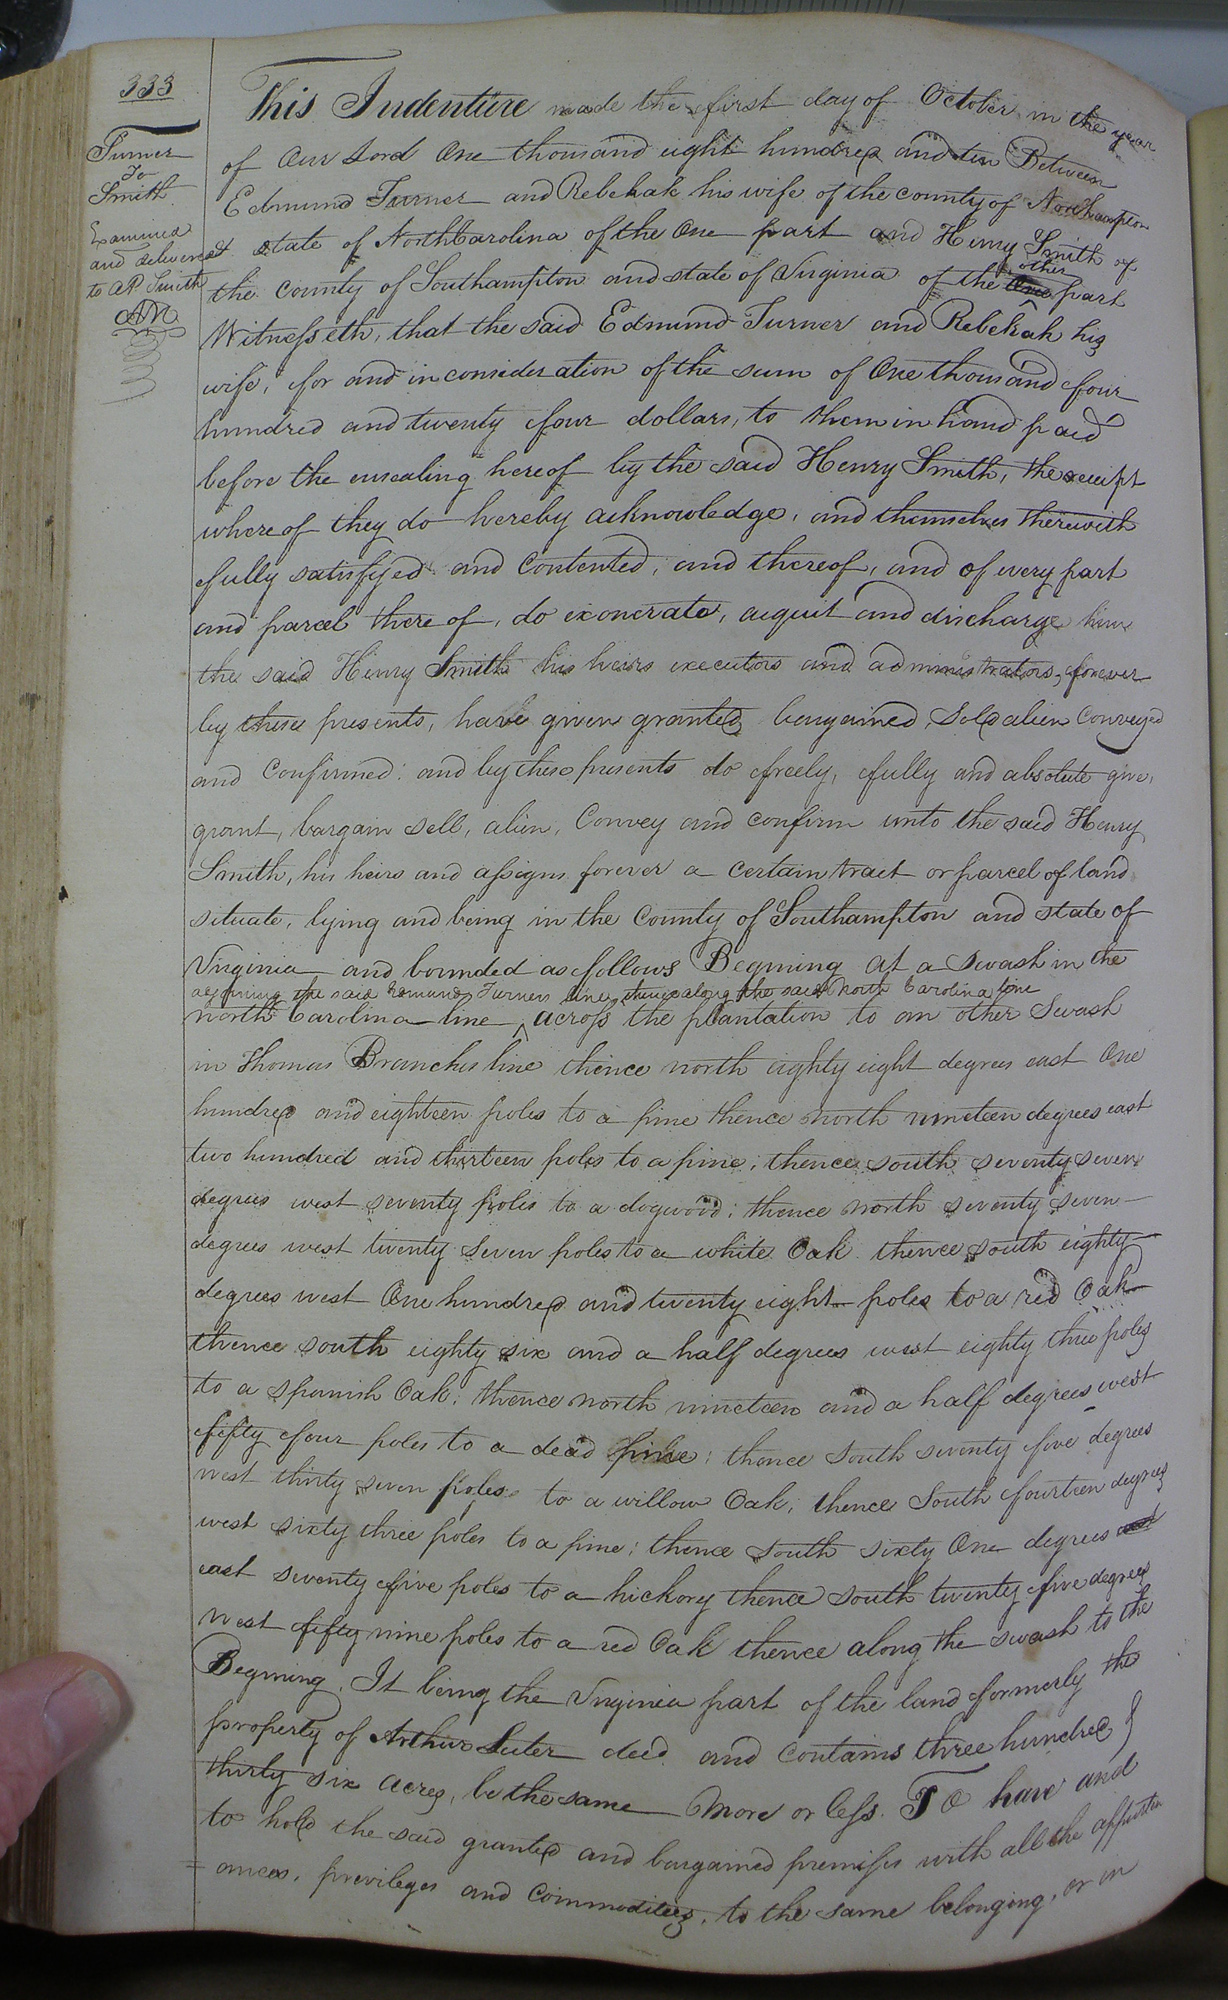 333
Turner
To
Smith
Examined
and delivered
to AP Smith
AN
This Indenture made the first day of October in the year
of Our Lord One thousand eight hundred and ten Between
Edmund Turner and Rebekah his wife of the county of Northampton
& state of North Carolina of the One part and Henry Smith of
the County of Southampton and state of Virginia of the other part
Witnesseth, that the said Edmund Turner and Rebekah his
wife, for and in consideration of the sum of One thousand four
hundred and twenty four dollars, to them in hand paid
before the ensealing hereof by the said Henry Smith, the receipt
where of they do hereby acknowledge, and themselves therewith
fully satisfyed and Contented, and thereof, and of every part
and parcel there of, do exonerate, acquit and discharge him
the said Henry Smith his heirs executors and administrators, forever
by these presents, have given granted bargained Sold alien Conveyed
and Confirmed: and by these presents do freely, fully and absolute give,
grant, bargain sell, alien, Convey and confirm unto the said Henry
Smith, his heirs and assigns forever a certain tract or parcel of land
situate, lying and being in the County of Southampton and state of
Virginia and bounded as follows Begining at a Swash in the
adjoining the said Edmund Turners line, thence along the said North Carolina line
north Carolina line ^ across the plantation to an other Swash
in Thomas Branches line thence north eighty eight degrees east One
hundred and eighteen poles to a pine thence north nineteen degrees east
two hundred and thirteen poles to a pine; thence south seventy seven
degrees west seventy poles to a dogwood; thence north seventy seven
degrees west twenty Seven poles to a white Oak thence south eighty
degrees west One hundred and twenty eight poles to a red Oak
thence south eighty six and a half degrees west eighty three poles
to a spanish Oak; thence north nineteen and a half degrees west
fifty four poles to a dead pine; thence South seventy five degrees
west thirty seven poles to a willow Oak; thence South fourteen degrees
west sixty three poles to a pine; thence south sixty One degrees
east seventy five poles to a hickory thence south twenty five degrees
west fifty nine poles to a red Oak thence along the swash to the
Begining. It being the Virginia part of the land formerly the
property of Arthur Luter decd. and contains three hundred
thirty six acres, be the same More or less. To have and
to hold the said granted and bargained premises with all the appurten
=ances, previleges and Commodities, to the same belonging, or in